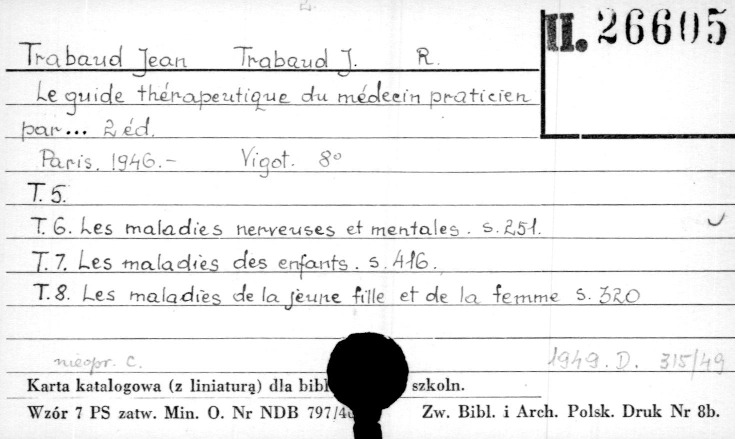 II. 26605
Trabaud Jean Trabaud J. R.
Le guide thérapeutique du médecin praticien
par... 2 éd.
Paris. 1946.- Vigot. 8°
T. 5.
T. 6. Les maladies nerveuses et mentales. s. 251.
T. 7. Les maladies des enfants. s. 416.
T. 8. Les maladies de la jeune fille et de la femme s. 320
nieopr. C. 1949. D. 315/49
Karta katalogowa (z liniaturą) dla szkoln.
Wzór 7 PS zatw. Min. O. Nr NDB Zw. Bibl. i Arch. Polsk. Druk Nr 8b.